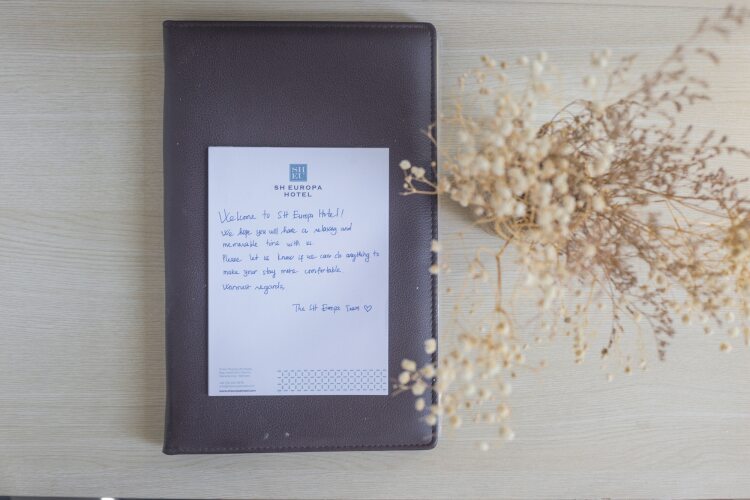 SH
EU
SH EUROPA
HOTEL
Welcome to SH Europa Hotel!
We hope you will have a relaxing and
memorable time with us.
Please let us know if we can do anything to
make your stay more comfortable.
Warmest regards,
The SH Europa Team ♡